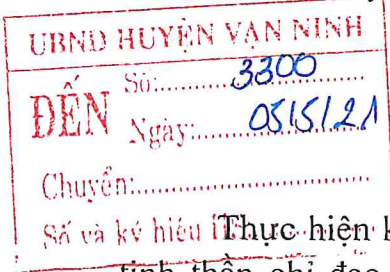 UBND HUYỆN VẠN NINH
ĐẾN
Số:.......3300.......
Ngày:.......05/5/21
Chuyển:.......
Số và ký hiệu
Thực hiện
tinh thần chỉ đạo